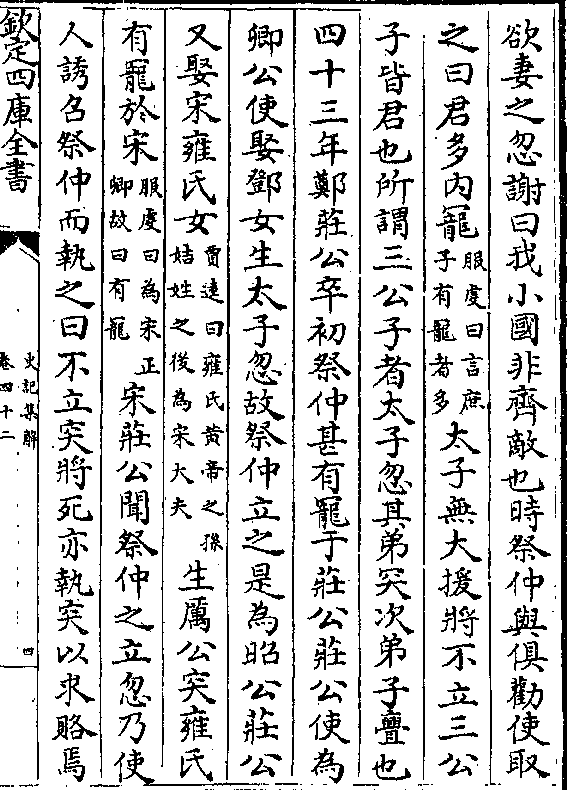 欲妻之忽謝曰我小國非齊敵也時祭仲與俱勸使取
之曰君多内寵服䖍曰言庶子有寵者多太子無大援將不立三公
子皆君也所謂三公子者太子忽其弟突次弟子亹也
四十三年鄭莊公卒初祭仲甚有寵于莊公莊公使為
卿公使娶鄧女生太子忽故祭仲立之是為昭公莊公
又娶宋雍氏女賈逵曰雍氏黄帝之孫姞姓之後為宋大夫生厲公突雍氏
有寵於宋服䖍曰為宋正卿故曰有寵宋莊公聞祭仲之立忽乃使
人誘召祭仲而執之曰不立突將死亦執突以求賂焉
欽定四庫全書
史記集解
卷四十二
四